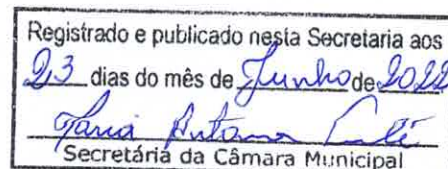 Registrado e publicado nesta Secretaria aos
23 dias do mês de Junho de 2022
Maria Antonia
Secretária da Câmara Municipal